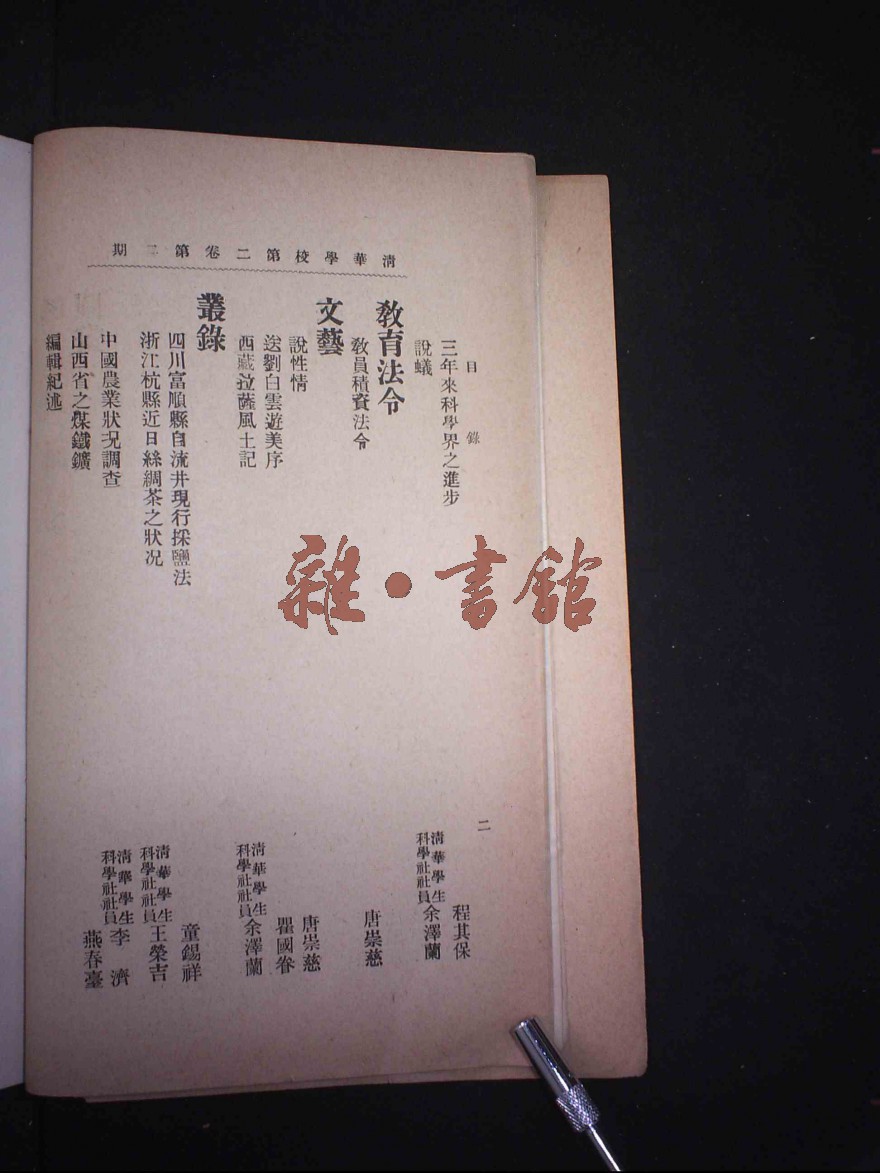 清華學校第二卷第二期
目錄
二
三年來科學界之進步 程其保
說蟻 清華學生科學社社員 余澤蘭
教育法令
教員積資法令 唐崇慈
文藝
說性情 唐崇慈
送劉白雲遊美序 瞿國眷
西藏拉薩風土記 清華學生科學社社員 余澤蘭
叢錄
四川富順縣自流井現行採鹽法 童錫祥
浙江杭縣近日絲綢茶之狀況 清華學生科學社社員 王榮吉
中國農業狀況調查 清華學生科學社社員 李濟
山西省之煤鐵鑛 燕春臺
編輯紀述
雜·書館